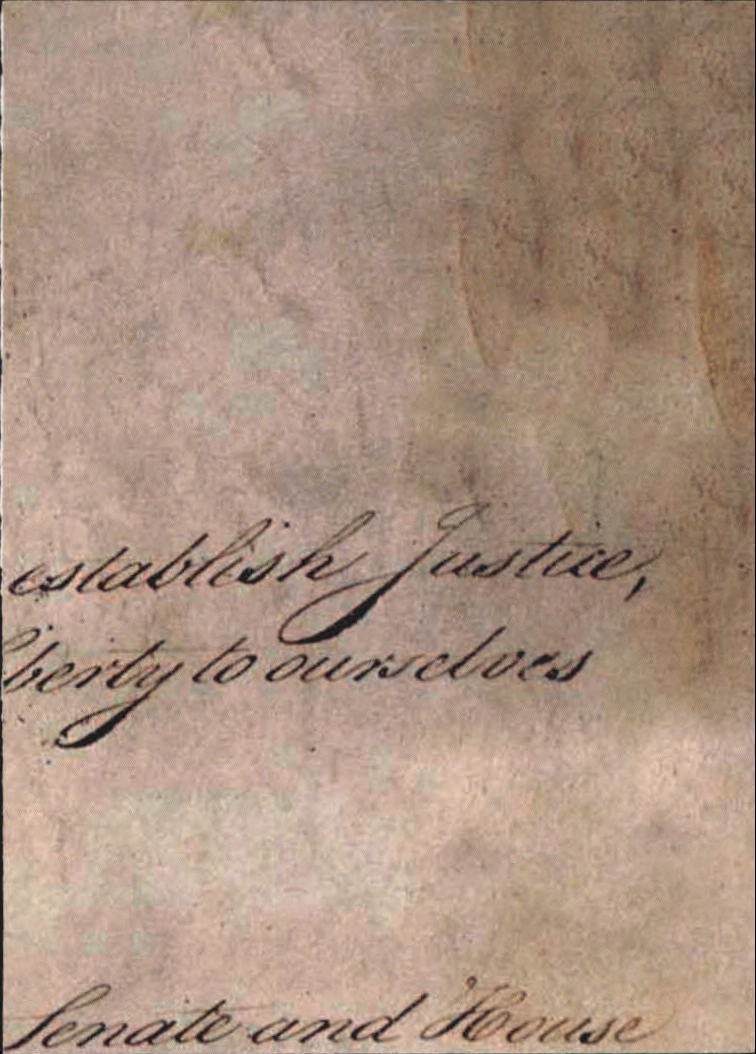 establish Justice,
iberty to ourselves
Senate and House